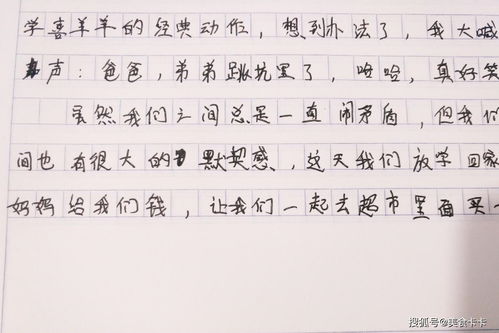 学喜羊羊的经典动作，想到办法了，我大喊
声：爸爸，弟弟跳坑里了，哈哈，真好笑
虽然我们之间总是一直闹矛盾，但我们
间也有很大的默契感，这天我们放学回家
妈妈给我们钱，让我们一起去超市里面买一
搜狐号@美食卡卡